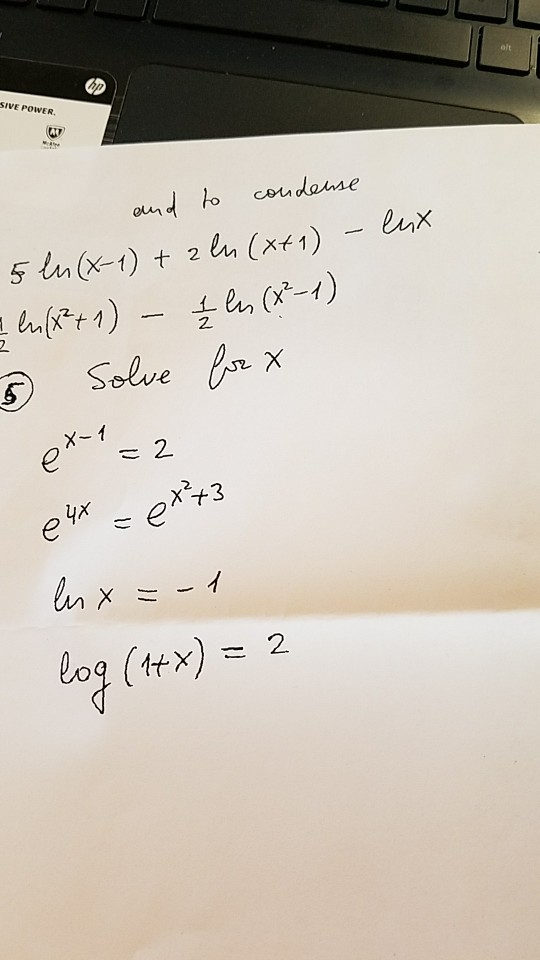 alt
hp
SIVE POWER.
McAfee
and to condense
5 ln(x-1) + 2 ln (x+1) - lnx
1/2 ln(x²+1) - 1/2 ln (x²-1)
⑤ Solve for x
e^(x-1) = 2
e^(4x) = e^(x²+3)
ln x = -1
log (1+x) = 2